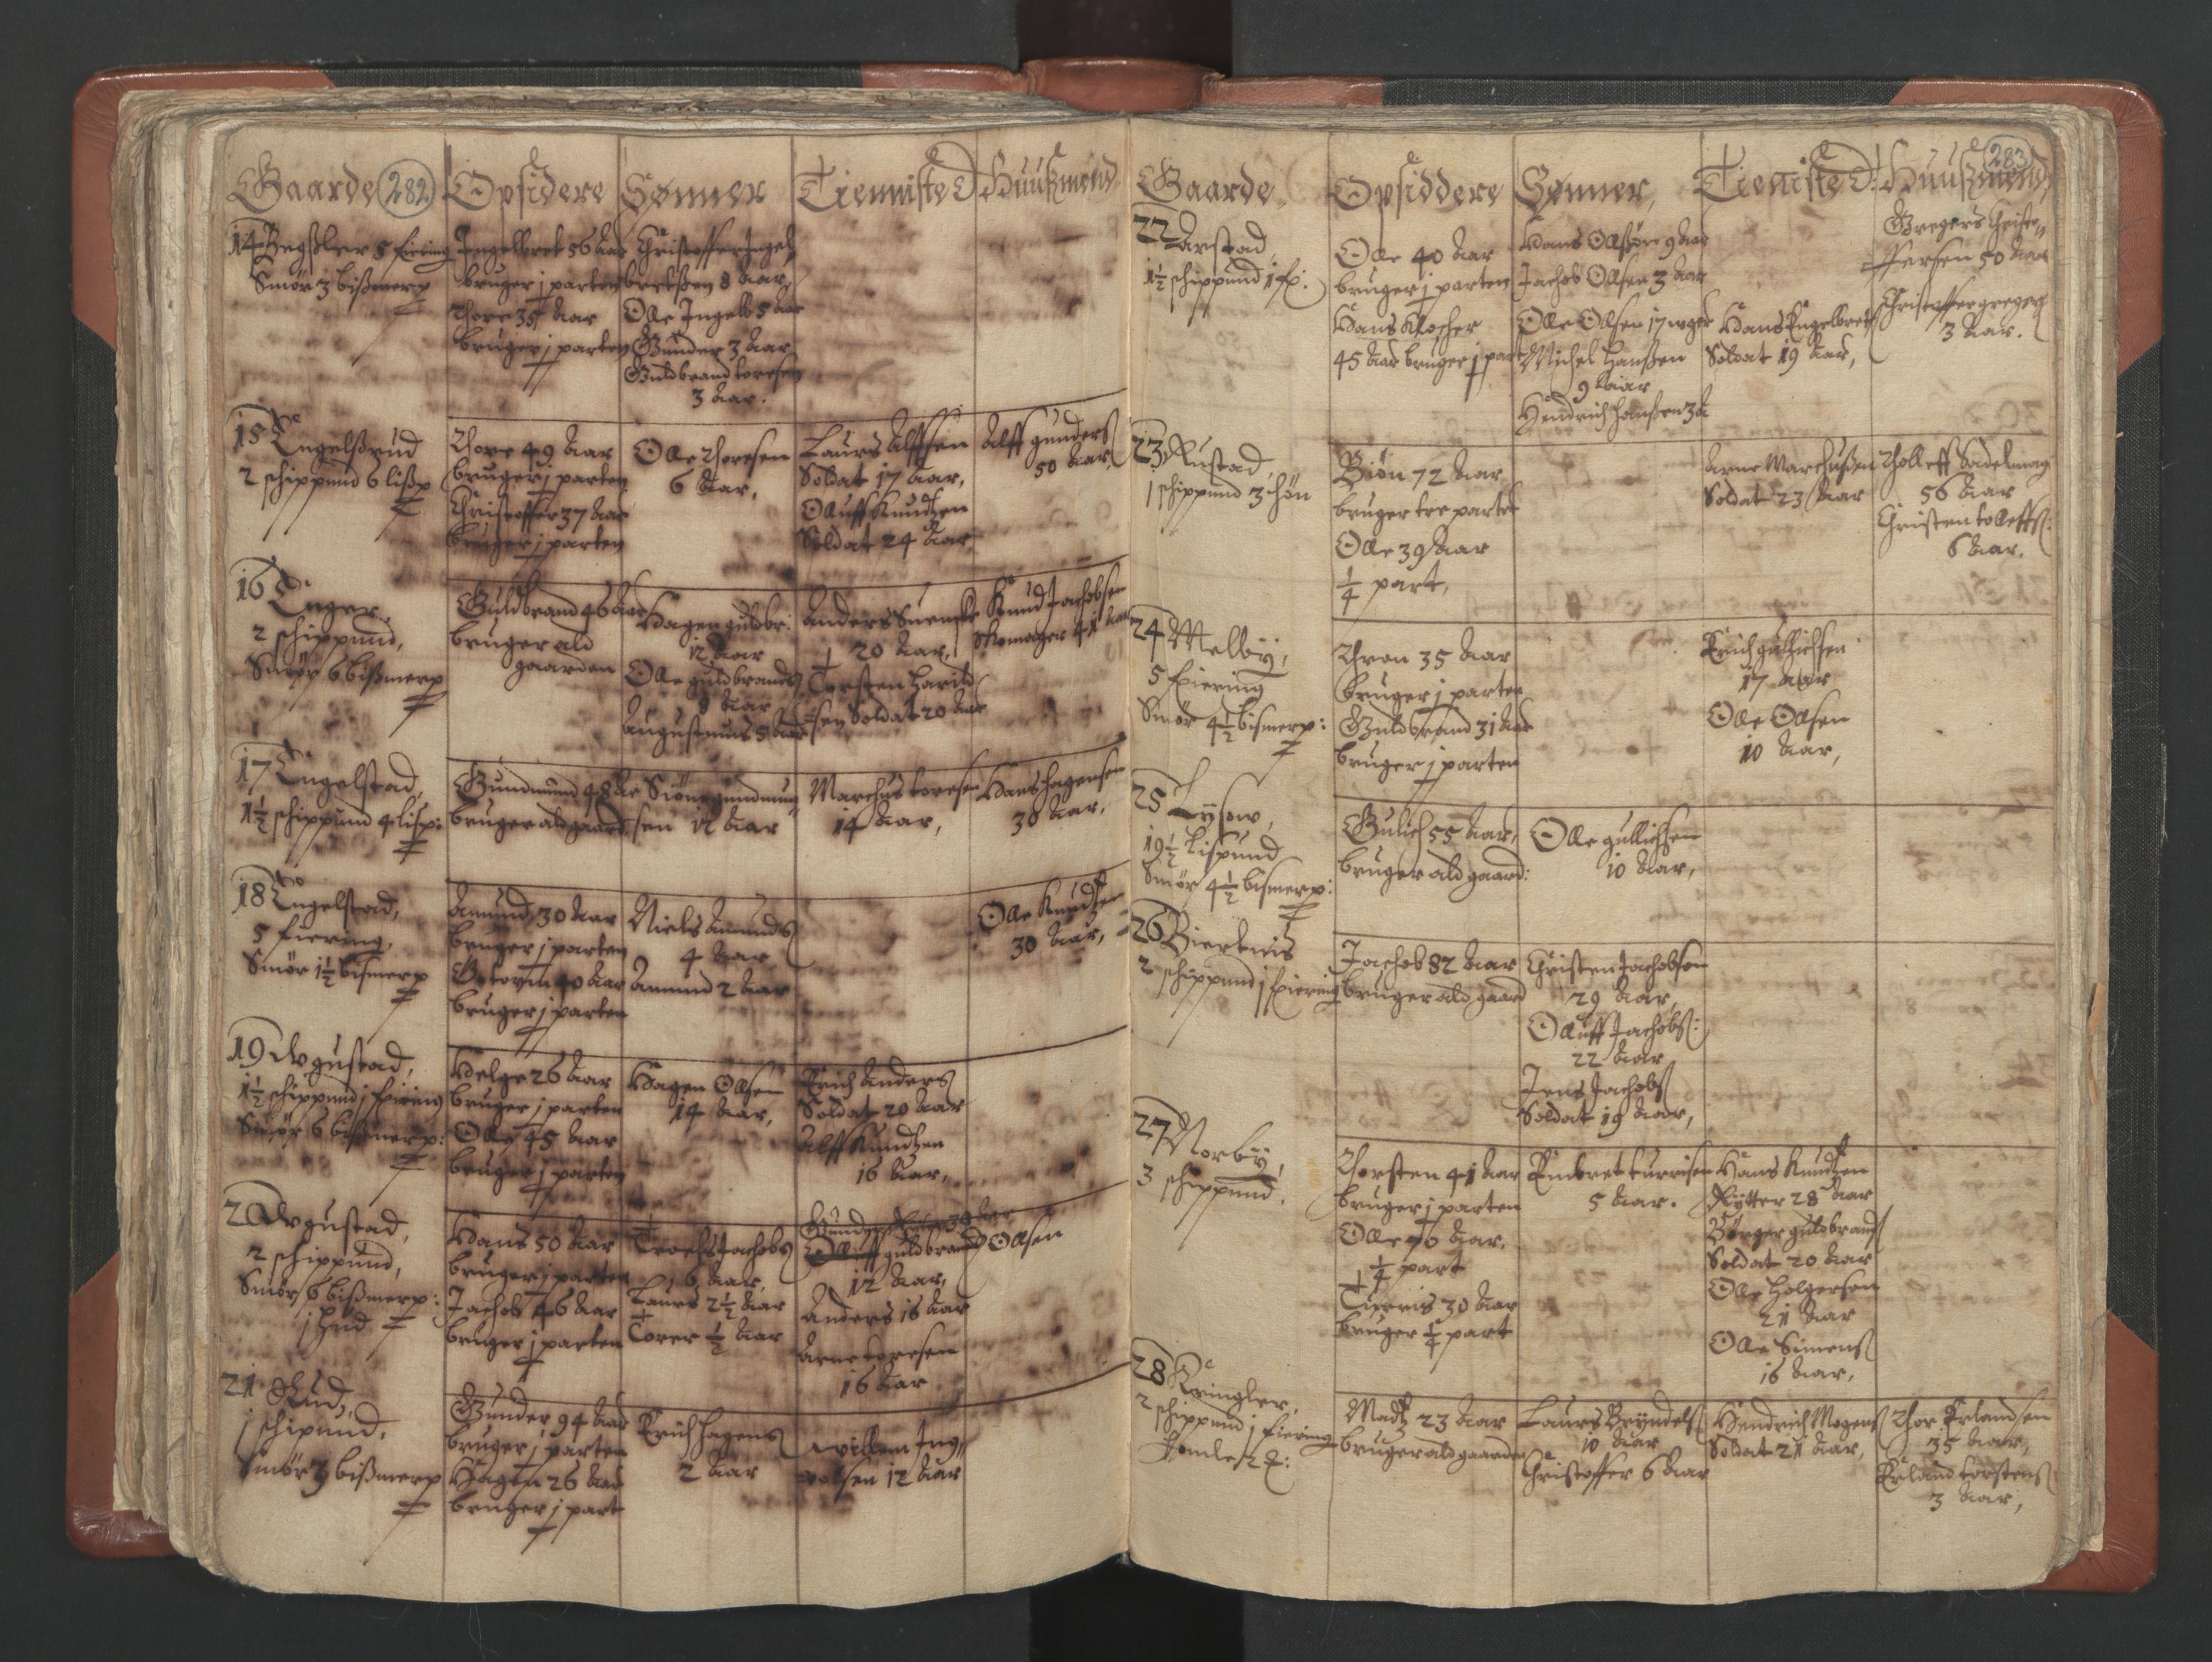 Gaarde 282 Opsidere Sønner Tienniste D: Huußmend
14 5 fiering
Smør 3 bißmerp
Ingelbret 56 Aar
bruger j parten
Thore 35 Aar
bruger j parten
Christoffer Ingel
bretßen 8 Aar,
Olle Ingelb 5 Aar
Gunder 3 Aar
Guldbrand toresen
3 Aar.
15 Engelßrud
2 schippund 6 lißp
Thore 49 Aar
bruger j parten
Christoffer 37 Aar
bruger j parten
Olle Thoresen
6 Aar,
Laurs Alffsen
Soldat 17 Aar,
Oluff Knudtzen
Soldat 24 Aar
Alff gunders
50 Aar,
16 Enger,
2 schippund,
Smør 6 bißmerp
Guldbrand 46 Aar
bruger ald
gaarden
Hagen guldbr:
12 Aar
Olle guldbrands
8 Aar
Augustinus 5 Aar
Anders Suenske
20 Aar,
Torsten Harild
sen Soldat 20 Aar
Knud Jachobsen
Skomager 41 Aar
17 Engelstad,
1½ schippund 4 lisp:
Gundmund 48 Aar
bruger ald gaard
Siønn gundmun
sen 12 Aar
Marchus toresen
14 Aar,
Hans hagensen
30 Aar,
18 Engelstad,
5 fiering,
Smør 1½ bismerp
Amund 30 Aar
bruger j parten
40 Aar
bruger j parten
Niels Amunds
4 Aar
Amund 2 Aar
Olle Knudtzen
30 Aar,
19 Augustad,
1½ schippund j fiering
Smør 6 bißmerp:
Helge 26 Aar
bruger j parten
Olle 45 Aar
bruger j parten
Hagen Olsen
14 Aar,
Erich Anders
Soldat 20 Aar
Alff Knudtzen
16 Aar,
20 Augustad,
2 schippund,
Smør 6 bißmerp:
j hud
Hans 50 Aar
bruger j parten
Jachob 46 Aar
bruger j parten
Troels Jachobs
6 Aar,
Laurs 2½ Aar
Torer ½ Aar
Gunder
Oluff guldbrand Olsen
12 Aar,
Anders 16 Aar
Arne toresen
16 Aar
21 Rud,
j schipund,
Smør 3 bißmerp
Gunder 94 Aar
bruger j parten
Hagen 26 Aar
bruger j part
Erich hagens
2 Aar
Willem Ing
volsen 12 Aar
Gaarde, Opsiddere Sønner, Tieniste D: Huußmend, 283
22 Arstad
1½ schippund j f:
Olle 40 Aar
bruger j parten
Hans Klocher
45 Aar bruger j part
Hans Olsøn 9 Aar
Jachob Olsen 3 Aar
Olle Olsen 17 uger
Michel Hanßen
9 Aar
Hendrich hansen 3 A
Hans Engelbret
Soldat 19 Aar,
Gregers Christo
ffersen 50 Aar
Christoffer gregers
3 Aar.
23 Rustad,
1 schippund 3
Biøn 72 Aar
bruger tre partet
Olle 39 Aar
¼ part,
Arne Marchußen
Soldat 23 Aar
Tholleff Sadelmag
56 Aar
Christen tolleffs:
6 Aar.
24 Melby,
5 fiering
Smør 4½ bismerp:
Thron 35 Aar
bruger j parten
Guldbrand 31 Aar
bruger j parten
Erich gullichsen
17 aar
Olle Olsen
10 Aar,
25 Lysow,
19½ Lispund
Smør 4½ bismerp:
Gulich 55 Aar,
bruger ald gaard:
Olle gullichsen
10 Aar,
26 Bierknis
2 schippund j fiering
Jachob 82 Aar
bruger ald gaard
Christen Jachobsen
29 Aar,
Oluff Jachobs:
22 Aar
Jens Jachobs
Soldat 19 Aar,
27 Norby,
3 schippund.
Thorsten 41 Aar
bruger j parten
Olle 76 Aar,
¼ part
Turris 30 Aar
bruger ¼ part
Embret turrisen
5 Aar.
Hans Knudtzen
Rytter 28 Aar
Børger guldbrands
Soldat 20 Aar
Olle Holgersen
21 Aar
Olle Simens
16 Aar,
28 Kringler,
2 schippund j fiering
Madtz 23 Aar
bruger ald gaarden
Laurs Bryndels
10 Aar
Christoffer 6 Aar
Hendrich Mogens
Soldat 21 Aar,
Thor Erlandsen
35 Aar,
Erland torstens
3 Aar,